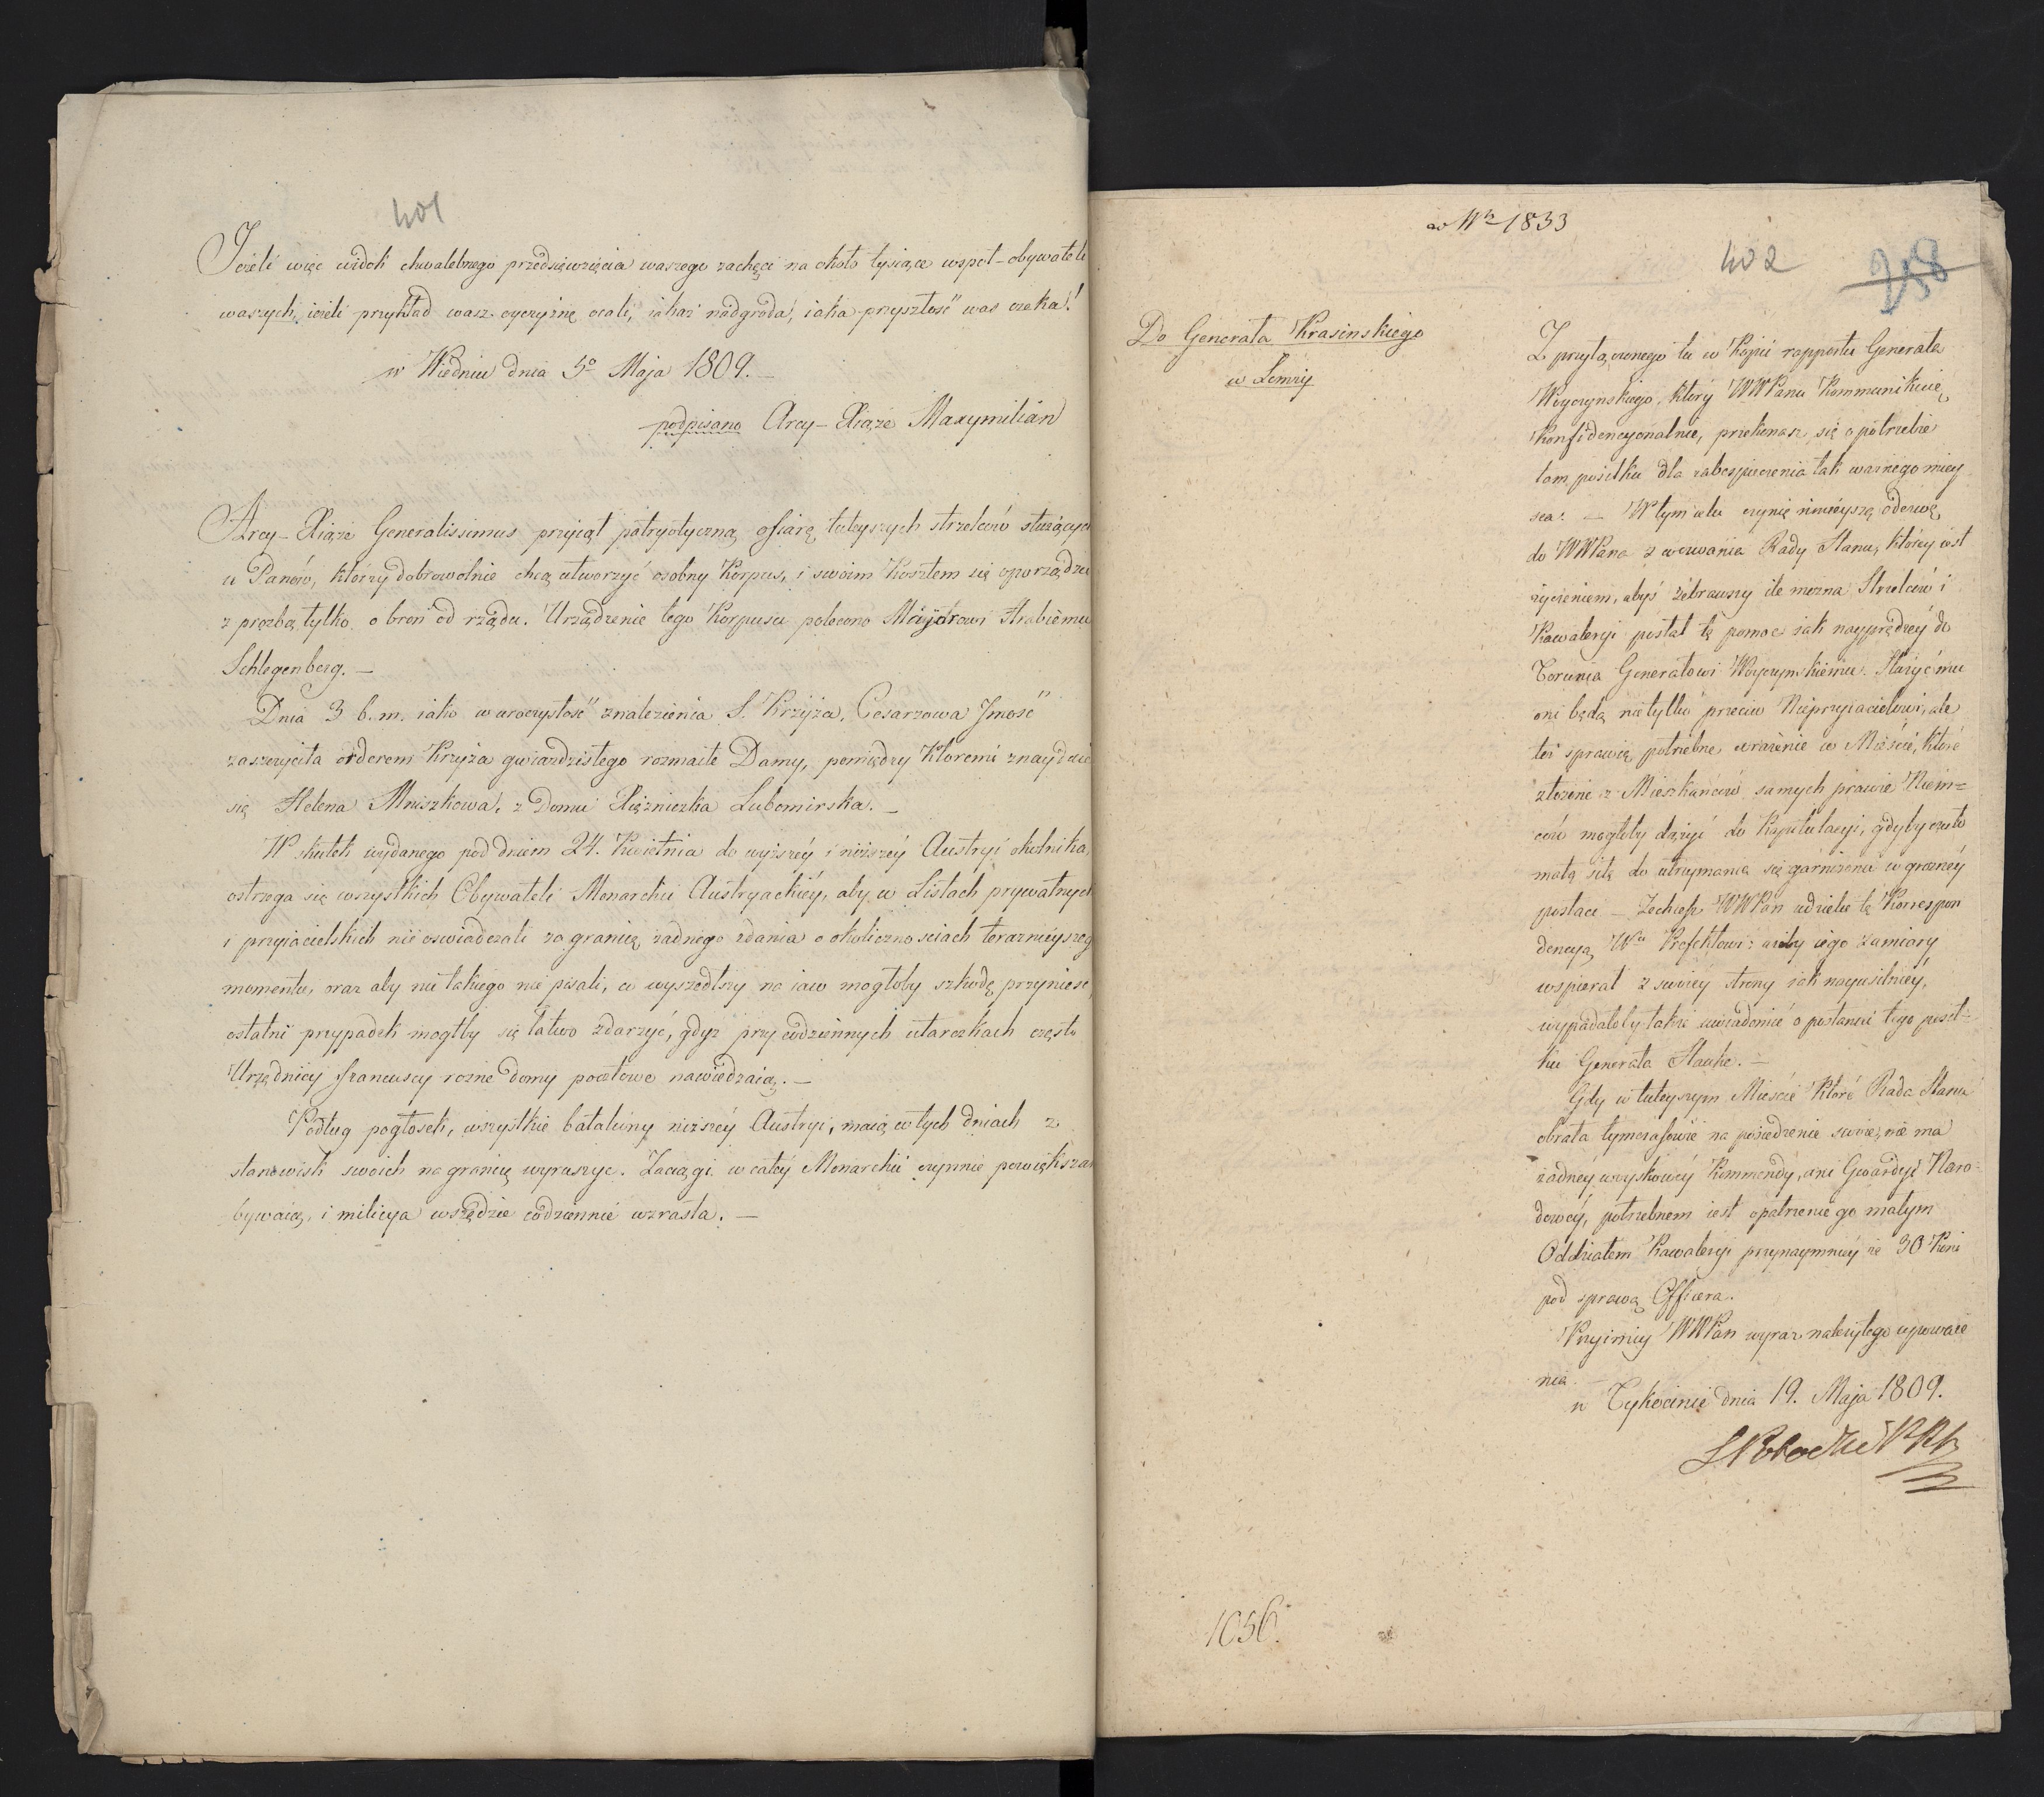 401
Jeżeli więc widok chwalebnego przedsięwzięcia waszego zachęci na około tysiące wspoł-obywateli
waszych, ieżeli przykład wasz oyczyznę ocali, iakaż nadgroda, iaka przyszłość was czeka!
w Wiedniu dnia 5º Maja 1809. —
podpisano Arcy-Xiąże Maxymilian
Arcy-Xiąże Generalissimus przyiął patryotyczną ofiarę tuteyszych strzelców służących
u Panów, którzy dobrowolnie chcą utworzyć osobny Korpus, i swoim Kosztem się oporządzić
z prozbą tylko o broń od rządu. Urządzenie tego Korpusu polecono Mayorowi Hrabiemu
Schlegenberg. —
Dnia 3 b.m. iako w uroczystość znalezienia S. Krzyża, Cesarzowa Jmość
zaszczyciła orderem Krzyża gwiazdzistego rozmaite Damy, pomiędzy Ktoremi znayduie
się Helena Mniszkowa, z Domu Xiężniczka Lubomirska. —
W skutek wydanego pod dniem 24. Kwietnia do wyższey i niższey Austryi okolnika,
ostrzega się wszystkich Obywateli Monarchii Austryackiey, aby w Listach prywatnych
i przyiacielskich nie oswiadczali za granicę żadnego zdania o okolicznosciach teraznieyszego
momentu, oraz aby nic takiego nie pisali, co wyszedłszy na iaw mogłoby szkodę przyniesc,
ostatni przypadek mogłby się łatwo zdarzyć, gdyż przy codziennych utarczkach często
Urzędnicy francuscy rożne domy pocztowe nawiedzaią. —
Podług pogłosek, wszystkie bataliony niższey Austryi, maią w tych dniach z
stanowisk swoich na granicę wyruszyc. Zaciągi w całey Monarchii czynnie powiększane
bywaią, i milicya wszędzie codziennie wzrasta. —
w Nr 1833
402
258
Do Generała Krasinskiego
w Łomży
Z przyłączonego tu w Kopii rapportu Generała
Woyczynskiego, który WWPanu Kommunikuię
Konfidencyonalnie, przekonasz się o potrzebie
tam posiłku dla zabespieczenia tak ważnego miey
sca. — W tym celu czynię ninieyszą odezwę
do WWPana z wezwania Rady Stanu, ktorey iest
życzeniem, abyś zebrawszy ile można Strzelców i
Kawaleryi posłał tę pomoc iak nayprędzey do
Torunia Generałowi Woyczynskiemu. Służyć mu
oni będą nietylko przeciw Nieprzyiacielowi, ale
też sprawią potrzebne wrażenie w Mieście, które
złożone z Mieszkańców samych prawie Niem=
ców mogłoby dążyć do Kapitulacyi, gdyby czuło
małą siłę do utrzymania się garnizonu w grozney
postaci — Zechcesz WWPan udzielić tę Korrespon
dencyą Wu Prefektowi: ażeby iego zamiary
wspierał z swoiey strony iak nayusilniey,
wypadałoby także uwiadomić o posłaniu tego posił-
ku Generała Hauke. —
Gdy w tuteyszym Mieście które Rada Stanu
obrała tymczasowie na posiedzenie swoie, nie ma
żadney woyskowey Kommendy, ani Gwardyi Naro-
dowey, potrzebnem iest opatrzenie go małym
Oddziałem Kawaleryi przynaymniey ze 30 Koni
pod sprawą Officera.
Przyimiy WWPan wyraz należytego upoważe
nia. —
w Tykocinie dnia 19. Maja 1809.
1056.